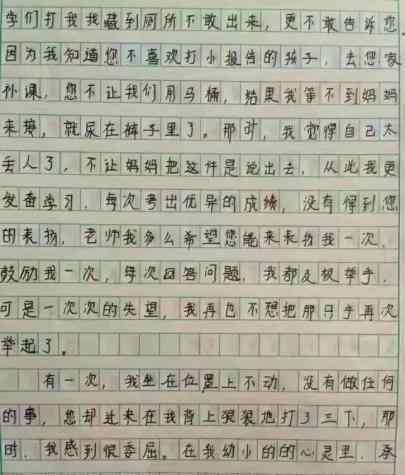 学们打我我藏到厕所不敢出来,更不敢告诉您。
因为我知道您不喜欢打小报告的孩子,去您家
补课,您不让我们用马桶,结果我等不到妈妈
来接,就尿在裤子里了。那时,我觉得自己太
丢人了,不让妈妈把这件是说出去,从此我更
发奋学习,每次考出优异的成绩,没有得到您
的表扬,老师我多么希望您能来表扬我一次,
鼓励我一次,每次回答问题,我都及极举手,
可是一次次的失望,我再也不想把那只手再次
举起了。
有一次,我坐在位置上不动,没有做任何
的事,您却进来在我背上狠狠地打了三下,那
时,我感到很委屈。在我幼小的的心灵里,原